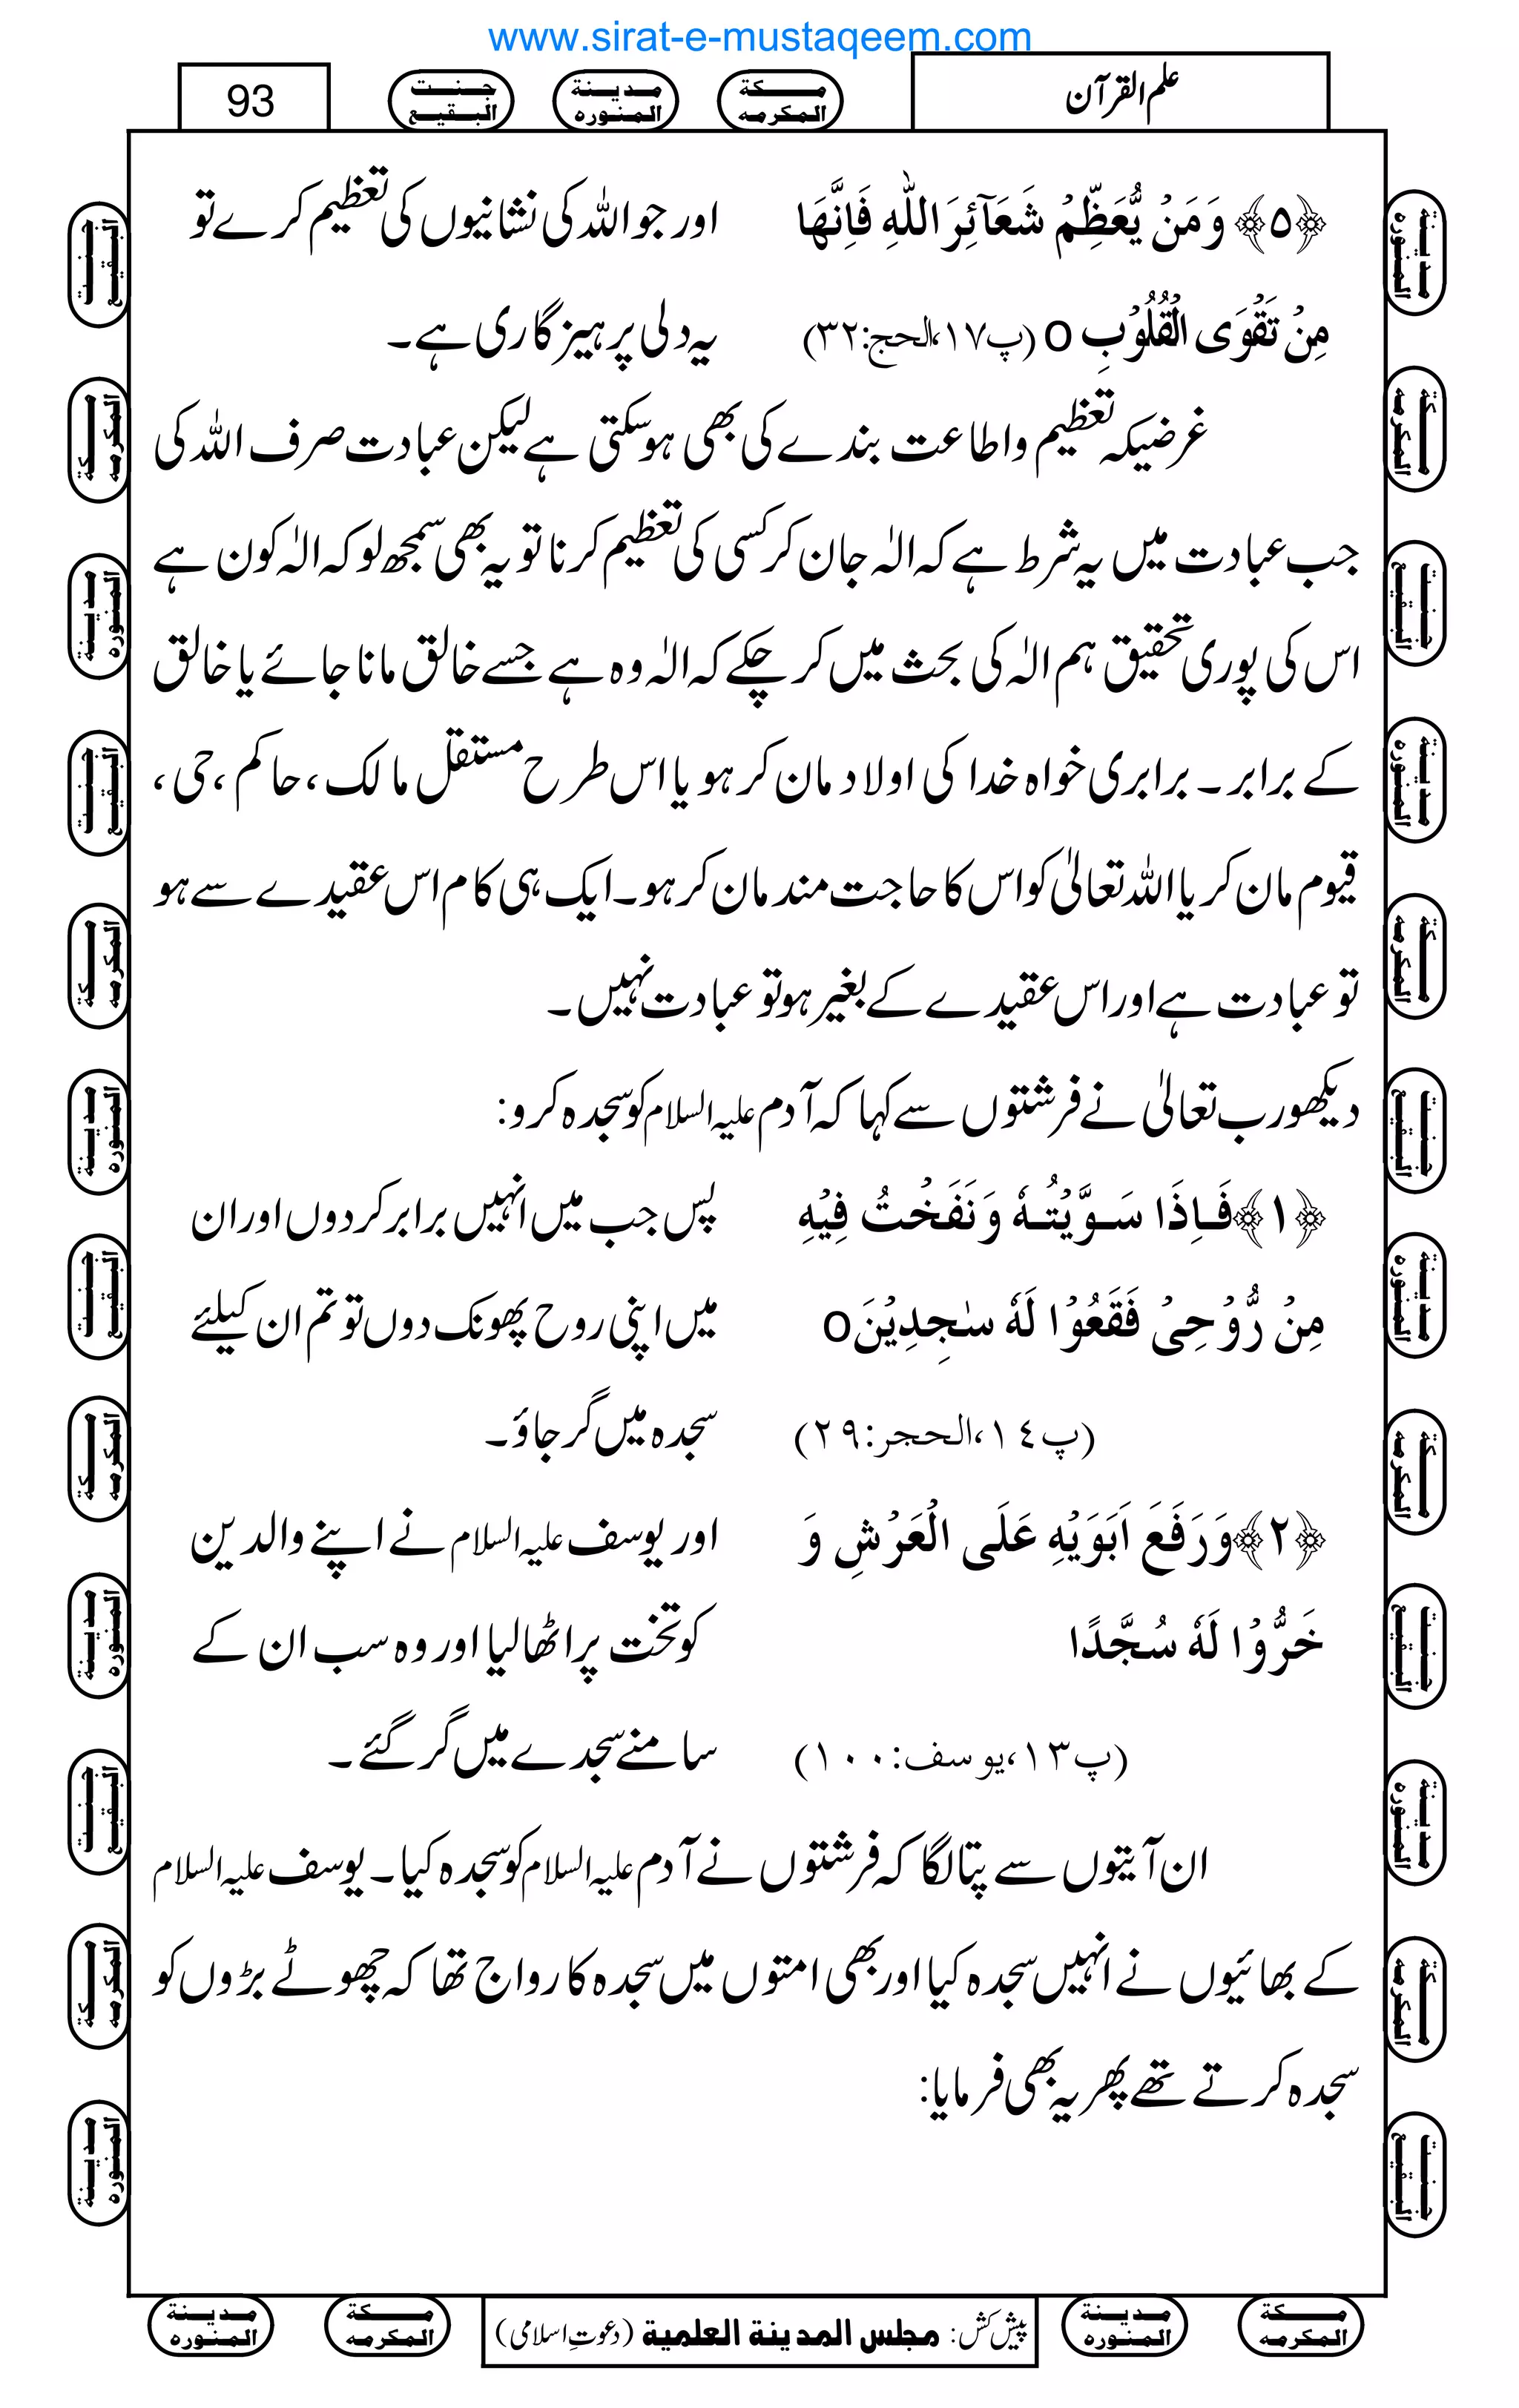 www.sirat-e-mustaqeem.com
علم القرآن
مـكة المكرمه
مـديـنة المنوره
جـنـت البـقيـع
93
﴿٥﴾ وَمَنۡ یُّعَظِّمۡ شَعَآئِرَ اللّٰہِ فَاِنَّھَا اور جو اللہ کی نشانیوں کی تعظیم کرے تو
مِنۡ تَقۡوَی الۡقُلُوۡبِ O (پ۱۷،الحج:۳۲) یہ دلی پرہیزگاری ہے۔
غرضیکہ تعظیم واطاعت بندے کی بھی ہوسکتی ہے لیکن عبادت صرف اللہ کی
جب عبادت میں یہ شرط ہے کہ الٰہ جان کر کسی کی تعظیم کرنا تو یہ بھی سمجھ لو کہ الٰہ کون ہے
اس کی پوری تحقیق ہم الٰہ کی بحث میں کرچکے کہ الٰہ وہ ہے جسے خالق مانا جائے یا خالق
کے برابر۔ برابری خواہ خدا کی اولاد مان کر ہو یا اس طرح مستقل مالک، حاکم، حی،
قیوم مان کر یا اللہ تعالٰی کو اس کا حاجت مند مان کر ہو۔ ایک ہی کام اس عقیدے سے ہو
تو عبادت ہے اور اس عقیدے کے بغیر ہو تو عبادت نہیں۔
دیکھو رب تعالٰی نے فرشتوں سے کہا کہ آدم علیہ السلام کو سجدہ کرو:
﴿۱﴾ فَاِذَا سَوَّیۡتُہٗ وَنَفَخۡتُ فِیۡہِ پس جب میں انہیں برابر کردوں اور ان
مِنۡ رُّوۡحِیۡ فَقَعُوۡا لَہٗ سٰجِدِیۡنَ O میں اپنی روح پھونک دوں تو تم ان کیلئے
(پ١٤،الحجر:۲۹) سجدہ میں گر جاؤ۔
﴿۲﴾ وَرَفَعَ اَبَوَیۡہِ عَلَی الۡعَرۡشِ وَ اور یوسف علیہ السلام نے اپنے والدین
خَرُّوۡا لَہٗ سُجَّدًا کو تخت پر اٹھا لیا اور وہ سب ان کے
(پ۱۳،یوسف:۱۰۰) سامنے سجدے میں گر گئے۔
ان آیتوں سے پتا لگا کہ فرشتوں نے آدم علیہ السلام کو سجدہ کیا۔ یوسف علیہ السلام
کے بھائیوں نے انہیں سجدہ کیا اور بھی امتوں میں سجدہ کا رواج تھا کہ چھوٹے بڑوں کو
سجدہ کرتے تھے پھر یہ بھی فرمایا:
مـكة المكرمه
مـديـنة المنوره
پیش کش: مجلس المدینة العلمیة (دعوتِ اسلامی)
مـكة المكرمه
مـديـنة المنوره